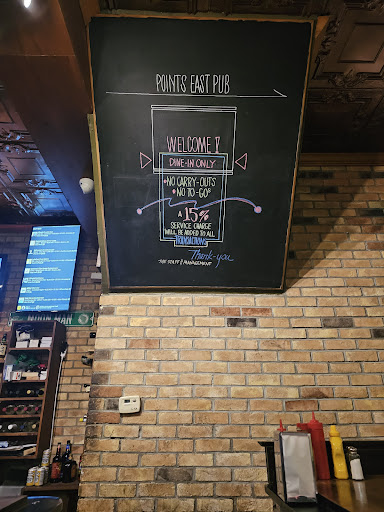 POINTS EAST PUB
WELCOME
DINE-IN ONLY
•NO CARRY-OUTS
•NO TO-GOS
A 15%
SERVICE CHARGE
WILL BE ADDED TO ALL
TRANSACTIONS
Thank-you
THE STAFF / MANAGEMENT